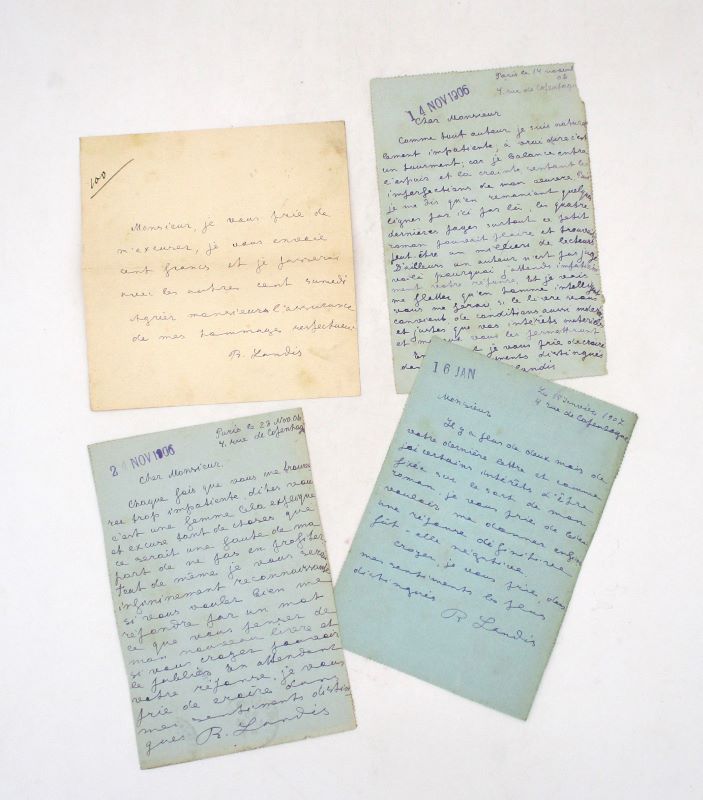 100
Monsieur, je vous prie de
m'excuser, je vous envoie
cent francs et je passerai
avec les autres cent samedi
Agréer monsieur l'assurance
de mes hommages respectueux
R. Landis
Paris le 14 novembre
06
4 rue de Copenhague
14 NOV 1906
Cher Monsieur
Comme tout auteur je suis natural
lement impatiente, à vrai dire c'est
un tourment; car je balance entre
l'espoir et la crainte sentant les
imperfections de mon œuvre.
je me dis qu'en remaniant quelques
lignes par ici par là, les quatre
dernières pages surtout ce petit
roman pourrait plaire et trouver
peut être un millier de lecteurs
D'ailleurs un auteur n'est pas juge
voilà pourquoi j'attends impatiem
ment votre réponse. Et je vais
me flatter qu'en homme intelligent
vous me ferez si le livre vous
convient de conditions aussi modestes
et justes que vos intérêts matériels
et moraux vous les permettront
En je vous prie de croire
distingués
Landis
Paris le 23 Nov. 06
4, rue de Copenhague
2 NOV 1906
Cher Monsieur.
Chaque fois que vous me trouve
rez trop impatiente, dites vous
c'est une femme cela explique
et excuse tant de choses que
ce serait une faute de ma
part de ne pas en profiter
Tout de même je vous serai
infiniment reconnaissante
si vous voulez bien me
répondre par un mot
ce que vous pensez de
mon nouveau livre et
si vous croyez pouvoir
le publier. En attendant
votre réponse, je vous
prie de croire dans
mes sentiments distin
gués R. Landis
16 JAN
Le 15 Janvier 1907
4 rue de Copenhague
Monsieur
Il y a plus de deux mois de
votre dernière lettre et comme
j'ai certains intérêts d'être
fixée sur le sort de mon
roman, je vous prie de bien
vouloir me donner enfin
une réponse définitive
fût-elle négative.
Croyez, je vous prie, dans
mes sentiments les plus
distingués
R Landis